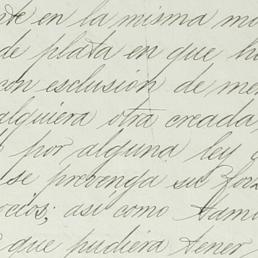 nte en la misma mo
de plata en que ha
con esclusion de me
alquiera otra creada
por alguna ley
se prevenga su forz
ocios; asi como tam
que pudiera tener